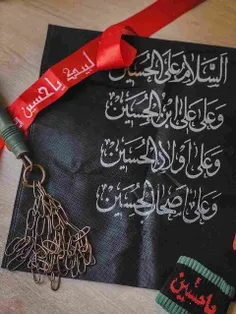 السَّلامُ عَلَى الحُسَيْن
وَعَلَى عَلِيِّ ابْنِ الحُسَيْن
وَعَلَى أَوْلادِ الحُسَيْن
وَعَلَى أَصْحابِ الحُسَيْن
لبيك يا حسين
يا حسين